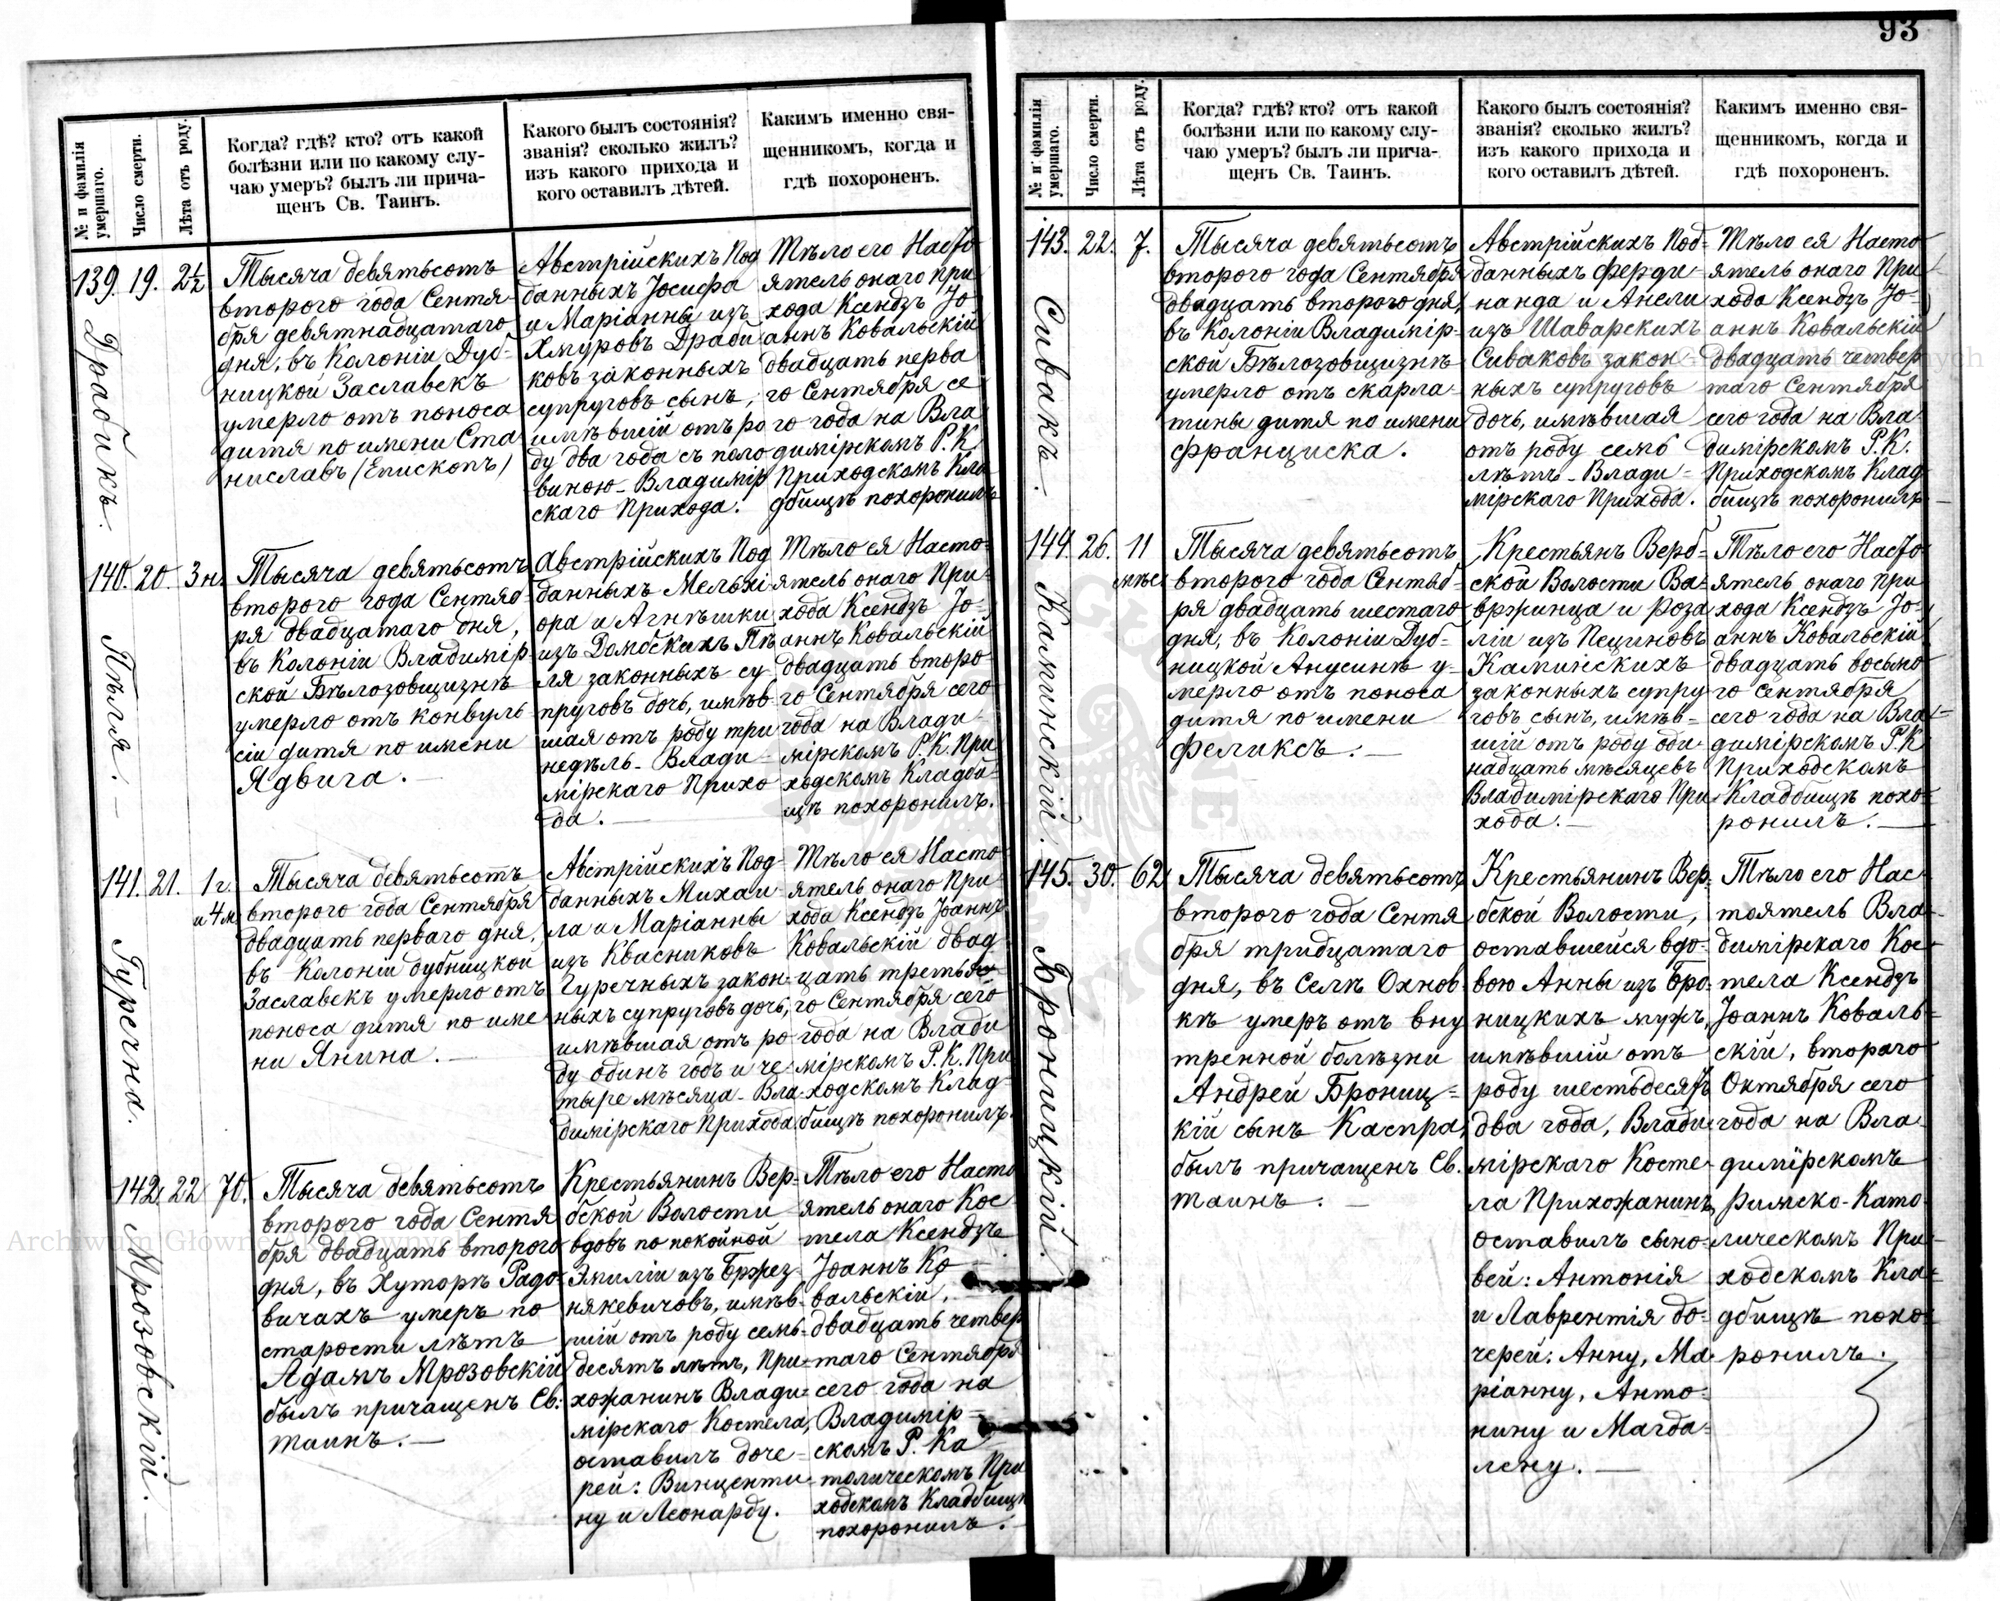 93
№ и фамилія умершаго.
Число смерти.
Лѣта отъ роду.
Когда? гдѣ? кто? отъ какой
болѣзни или по какому слу-
чаю умеръ? былъ ли прича-
щенъ Св. Таинъ.
Какого былъ состоянія?
званія? сколько жилъ?
изъ какого прихода и
кого оставилъ дѣтей.
Какимъ именно свя-
щенникомъ, когда и
гдѣ похороненъ.
139. 19. 2½
Драбикъ.
Тысяча девятьсотъ
второго года Сентя-
бря девятнадцатаго
дня, въ Колоніи Дуб-
ницкой Заславекъ
умерло отъ поноса
дитя по имени Ста
ниславъ (Епископъ)
Австрійскихъ Под
данныхъ Іосифа
и Маріанны изъ
Хмуровъ Драби
ковъ законныхъ
супруговъ сынъ,
имѣвшій отъ ро
ду два года съ поло
виною - Владимір
скаго Прихода.
Тѣло его Насто
ятель онаго При
хода Ксендзъ Іо
аннъ Ковальскій
двадцать перва
го Сентября се
го года на Вла
димірскомъ Р. К.
Приходскомъ Кла
дбищѣ похоронилъ
140. 20. 3 н.
Пѣля. —
Тысяча девятьсотъ
второго года Сентяб
ря двадцатаго дня,
въ Колоніи Владимір
ской Бѣлозовщизнѣ
умерло отъ конвуль
сіи дитя по имени
Ядвига. —
Австрійскихъ Под
данныхъ Мельхі
ора и Агнѣшки
изъ Домбскихъ Пѣ
ля законныхъ су
пруговъ дочь, имѣв
шая отъ роду три
недѣль - Влади -
мірскаго Прихо
да. —
Тѣло ея Насто-
ятель онаго При-
хода Ксендзъ Іо-
аннъ Ковальскій
двадцать второ-
го Сентября сего
года на Влади -
мірскомъ Р. К. При
ходскомъ Кладби-
щѣ похоронилъ.
141. 21. 1 г.
и 4 м.
Гуречна.
Тысяча девятьсотъ
второго года Сентября
двадцать перваго дня,
въ Колоніи дубницкой
Заславекъ умерло отъ
поноса дитя по име
ни Янина. —
Австрійскихъ Под-
данныхъ Михаи-
ла и Маріанны
изъ Квасниковъ
Гуречныхъ закон-
ныхъ супруговъ дочь,
имѣвшая отъ ро
ду одинъ годъ и че
тыре мѣсяца - Вла
димірскаго Прихода
Тѣло ея Насто
ятель онаго При-
хода Ксендзъ Іоаннъ
Ковальскій двад-
цать третья
го Сентября сего
года на Влади
мірскомъ Р. К. При
ходскомъ Клад-
бищѣ похоронилъ.
142. 22 70.
Мрозовскій. —
Тысяча девятьсотъ
второго года Сентя
бря двадцать второго
дня, въ Хуторѣ Радо-
вичахъ умеръ по
старости лѣтъ
Адамъ Мрозовскій
былъ причащенъ Св:
таинъ. —
Крестьянинъ Вер-
бской Волости
вдовъ по покойной
Эмиліи изъ Бржез-
някевичовъ, имѣв-
шій отъ роду семь-
десятъ лѣтъ, При-
хожанинъ Влади-
мірскаго Костела,
оставилъ доче-
рей: Винценти
ну и Леонарду.
Тѣло его Насто
ятель онаго Кос-
тела Ксендзъ
Іоаннъ Ко
вальскій,
двадцать четвер
таго Сентября
сего года на
Владимір-
скомъ Р. Ка
толическомъ При
ходскомъ Кладбищѣ
похоронилъ.
№ и фамилія умершаго.
Число смерти.
Лѣта отъ роду.
Когда? гдѣ? кто? отъ какой
болѣзни или по какому слу-
чаю умеръ? былъ ли прича-
щенъ Св. Таинъ.
Какого былъ состоянія?
званія? сколько жилъ?
изъ какого прихода и
кого оставилъ дѣтей.
Какимъ именно свя-
щенникомъ, когда и
гдѣ похороненъ.
143. 22. 7.
Сивакъ.
Тысяча девятьсотъ
второго года Сентября
двадцать второго дня,
въ Колоніи Владимір-
ской Бѣлозовщизнѣ
умерло отъ скарла-
тины дитя по имени
Франциска.
Австрійскихъ Под-
данныхъ Ферди
нанда и Анели
изъ Шаварскихъ
Сиваковъ закон-
ныхъ супруговъ
дочь, имѣвшая
отъ роду семь
лѣтъ - Влади -
мірскаго Прихода.
Тѣло ея Насто
ятель онаго При-
хода Ксендзъ Іо-
аннъ Ковальскій
двадцать четвер
таго Сентября
сего года на Вла
димірскомъ Р. К.
Приходскомъ Клад
бищѣ похоронилъ —
144. 26. 11
мѣс
Каминскій.
Тысяча девятьсотъ
второго года Сентяб-
ря двадцать шестаго
дня, въ Колоніи Дуб-
ницкой Анусинѣ у-
мерло отъ поноса
дитя по имени
Феликсъ. —
Крестьянъ Верб-
ской Волости Ва-
вржинца и Роза
ліи изъ Пециновъ
Каминскихъ
законныхъ супру
говъ сынъ, имѣв-
шій отъ роду оди-
надцать мѣсяцевъ
Владимірскаго При
хода. —
Тѣло его Насто
ятель онаго При
хода Ксендзъ Іо-
аннъ Ковальскій
двадцать восьмо
го Сентября
сего года на Вла-
димірскомъ Р. К
Приходскомъ
Кладбищѣ похо-
ронилъ. —
145. 30. 62
Броницкій.
Тысяча девятьсотъ
второго года Сентя
бря тридцатаго
дня, въ Селѣ Охнов
кѣ умеръ отъ вну
тренной болѣзни
Андрей Брониц-
кій сынъ Каспра,
былъ причащенъ Св.
таинъ. —
Крестьянинъ Вер-
бской Волости,
оставшейся вдо-
вою Анны изъ Бро-
ницкихъ мужъ,
имѣвшій отъ
роду шестьдесятъ
два года, Влади-
мірскаго Косте-
ла Прихожанинъ,
оставилъ сыно-
вей: Антонія
и Лаврентія до-
черей: Анну, Ма-
ріанну, Анто-
нину и Магда-
лену. —
Тѣло его Нас-
тоятель Вла-
димірскаго Кос-
тела Ксендзъ
Іоаннъ Коваль-
скій, втораго
Октября сего
года на Вла-
димірскомъ
Римско-Като-
лическомъ При-
ходскомъ Кла-
дбищѣ похо-
ронилъ.